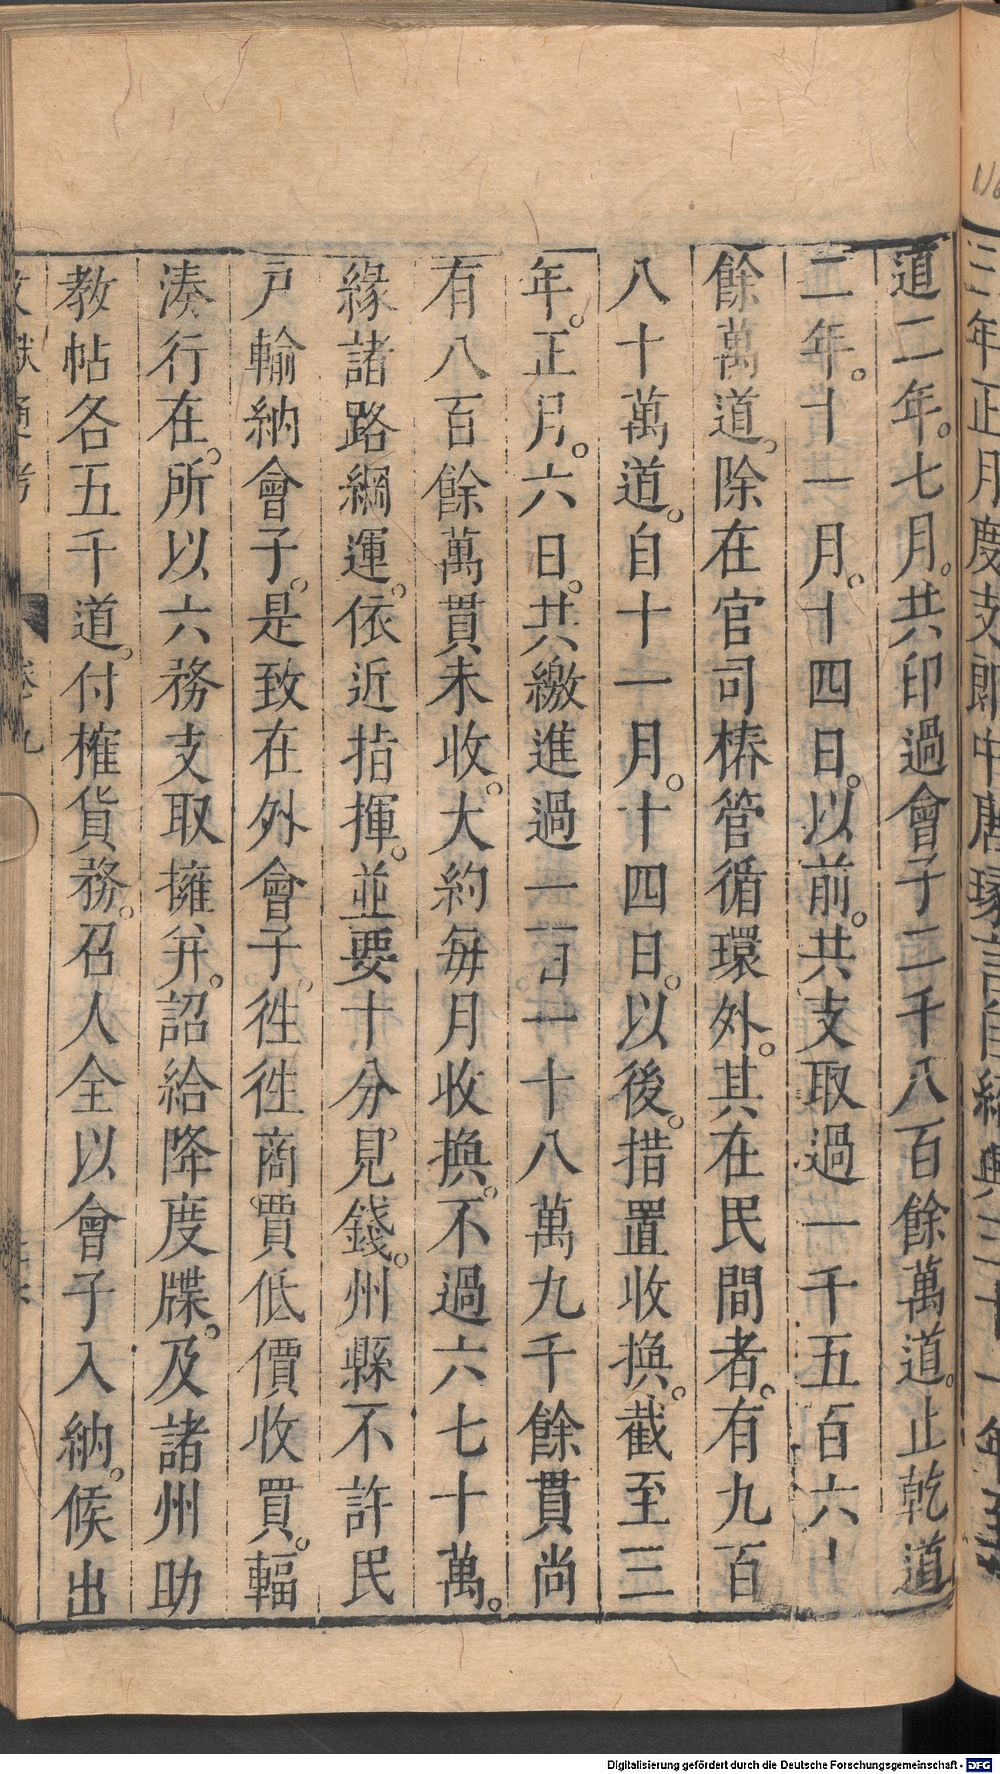 三年正月度支郎中唐瑑言自紹興三十一年至
道二年。七月。共印過會子二千八百餘萬道。止乾道
二年。十一月。十四日。以前。共支取過一千五百六十
餘萬道。除在官司樁管循環外。其在民間者。有九百
八十萬道。自十一月。十四日。以後。措置收換。截至三
年。正月。六日。共繳進過一百一十八萬九千餘貫尚
有八百餘萬貫未收。大約每月收換。不過六七十萬。
緣諸路綱運。依近指揮。並要十分。見錢。州縣不許民
戶輸納會子。是致在外會子。徃徃商賈低價收買。輻
湊行在。所以六務支取擁并。詔給降度牒。及諸州助
教帖各五千道。付榷貨務。召人全以會子入納。候出
文獻通考 卷九
Digitalisierung gefördert durch die Deutsche Forschungsgemeinschaft - DFG